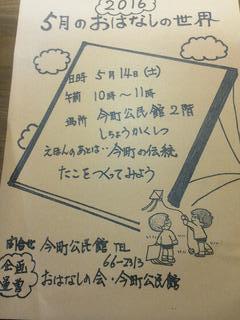 2016
5月のおはなしの世界
日時 5月14日(土)
午前 10時~11時
場所 今町公民館2階
しちょうかくしつ
えほんのあとは‥今町の伝統
たこをつくってみよう
問合せ 今町公民館 TEL
66-2313
企画
運営
おはなしの会・今町公民館